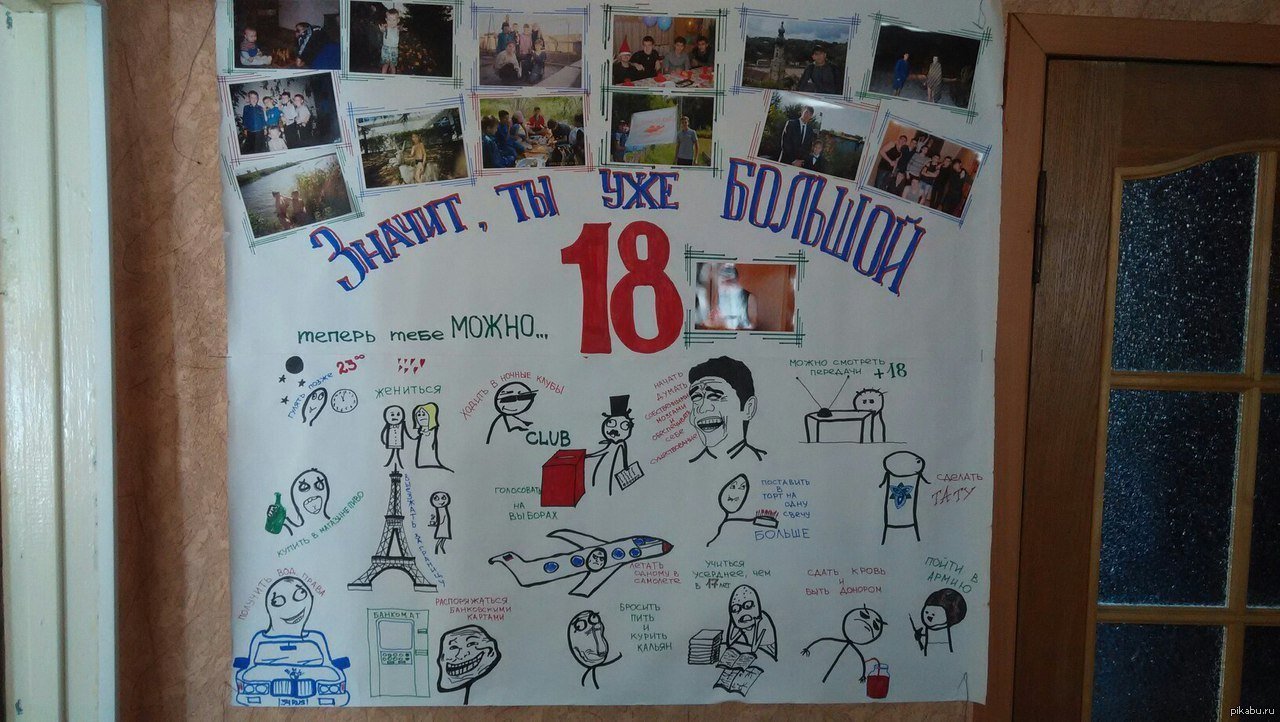 Значит, ты уже БОЛЬШОЙ
18
теперь тебе МОЖНО...
гулять позже
23⁰⁰
ЖЕНИТЬСЯ
ХОДИТЬ В НОЧНЫЕ КЛУБЫ
CLUB
НАЧАТЬ
ДУМАТЬ
СОБСТВЕННЫМИ
МОЗГАМИ
И
ОБЕСПЕЧИВАТЬ
СЕБЕ
СУЩЕСТВОВАНИЕ
МОЖНО СМОТРЕТЬ
ПЕРЕДАЧИ +18
КУПИТЬ В МАГАЗИНЕ ПИВО
УЕЗЖАТЬ
ГОЛОСОВАТЬ
НА
ВЫБОРАХ
ПОСТАВИТЬ
В
ТОРТ НА
ОДНУ
СВЕЧУ
БОЛЬШЕ
СДЕЛАТЬ
ТАТУ
ЛЕТАТЬ
ОДНОМУ В
САМОЛЕТЕ
ПОЛУЧИТЬ ВОД. ПРАВА
БАНКОМАТ
РАСПОРЯЖАТЬСЯ
БАНКОВСКИМИ
КАРТАМИ
БРОСИТЬ
ПИТЬ
И
КУРИТЬ
КАЛЬЯН
УЧИТЬСЯ
УСЕРДНЕЕ, ЧЕМ
В 17 ЛЕТ
СДАТЬ КРОВЬ
И
БЫТЬ ДОНОРОМ
ПОЙТИ В
АРМИЮ
pikabu.ru